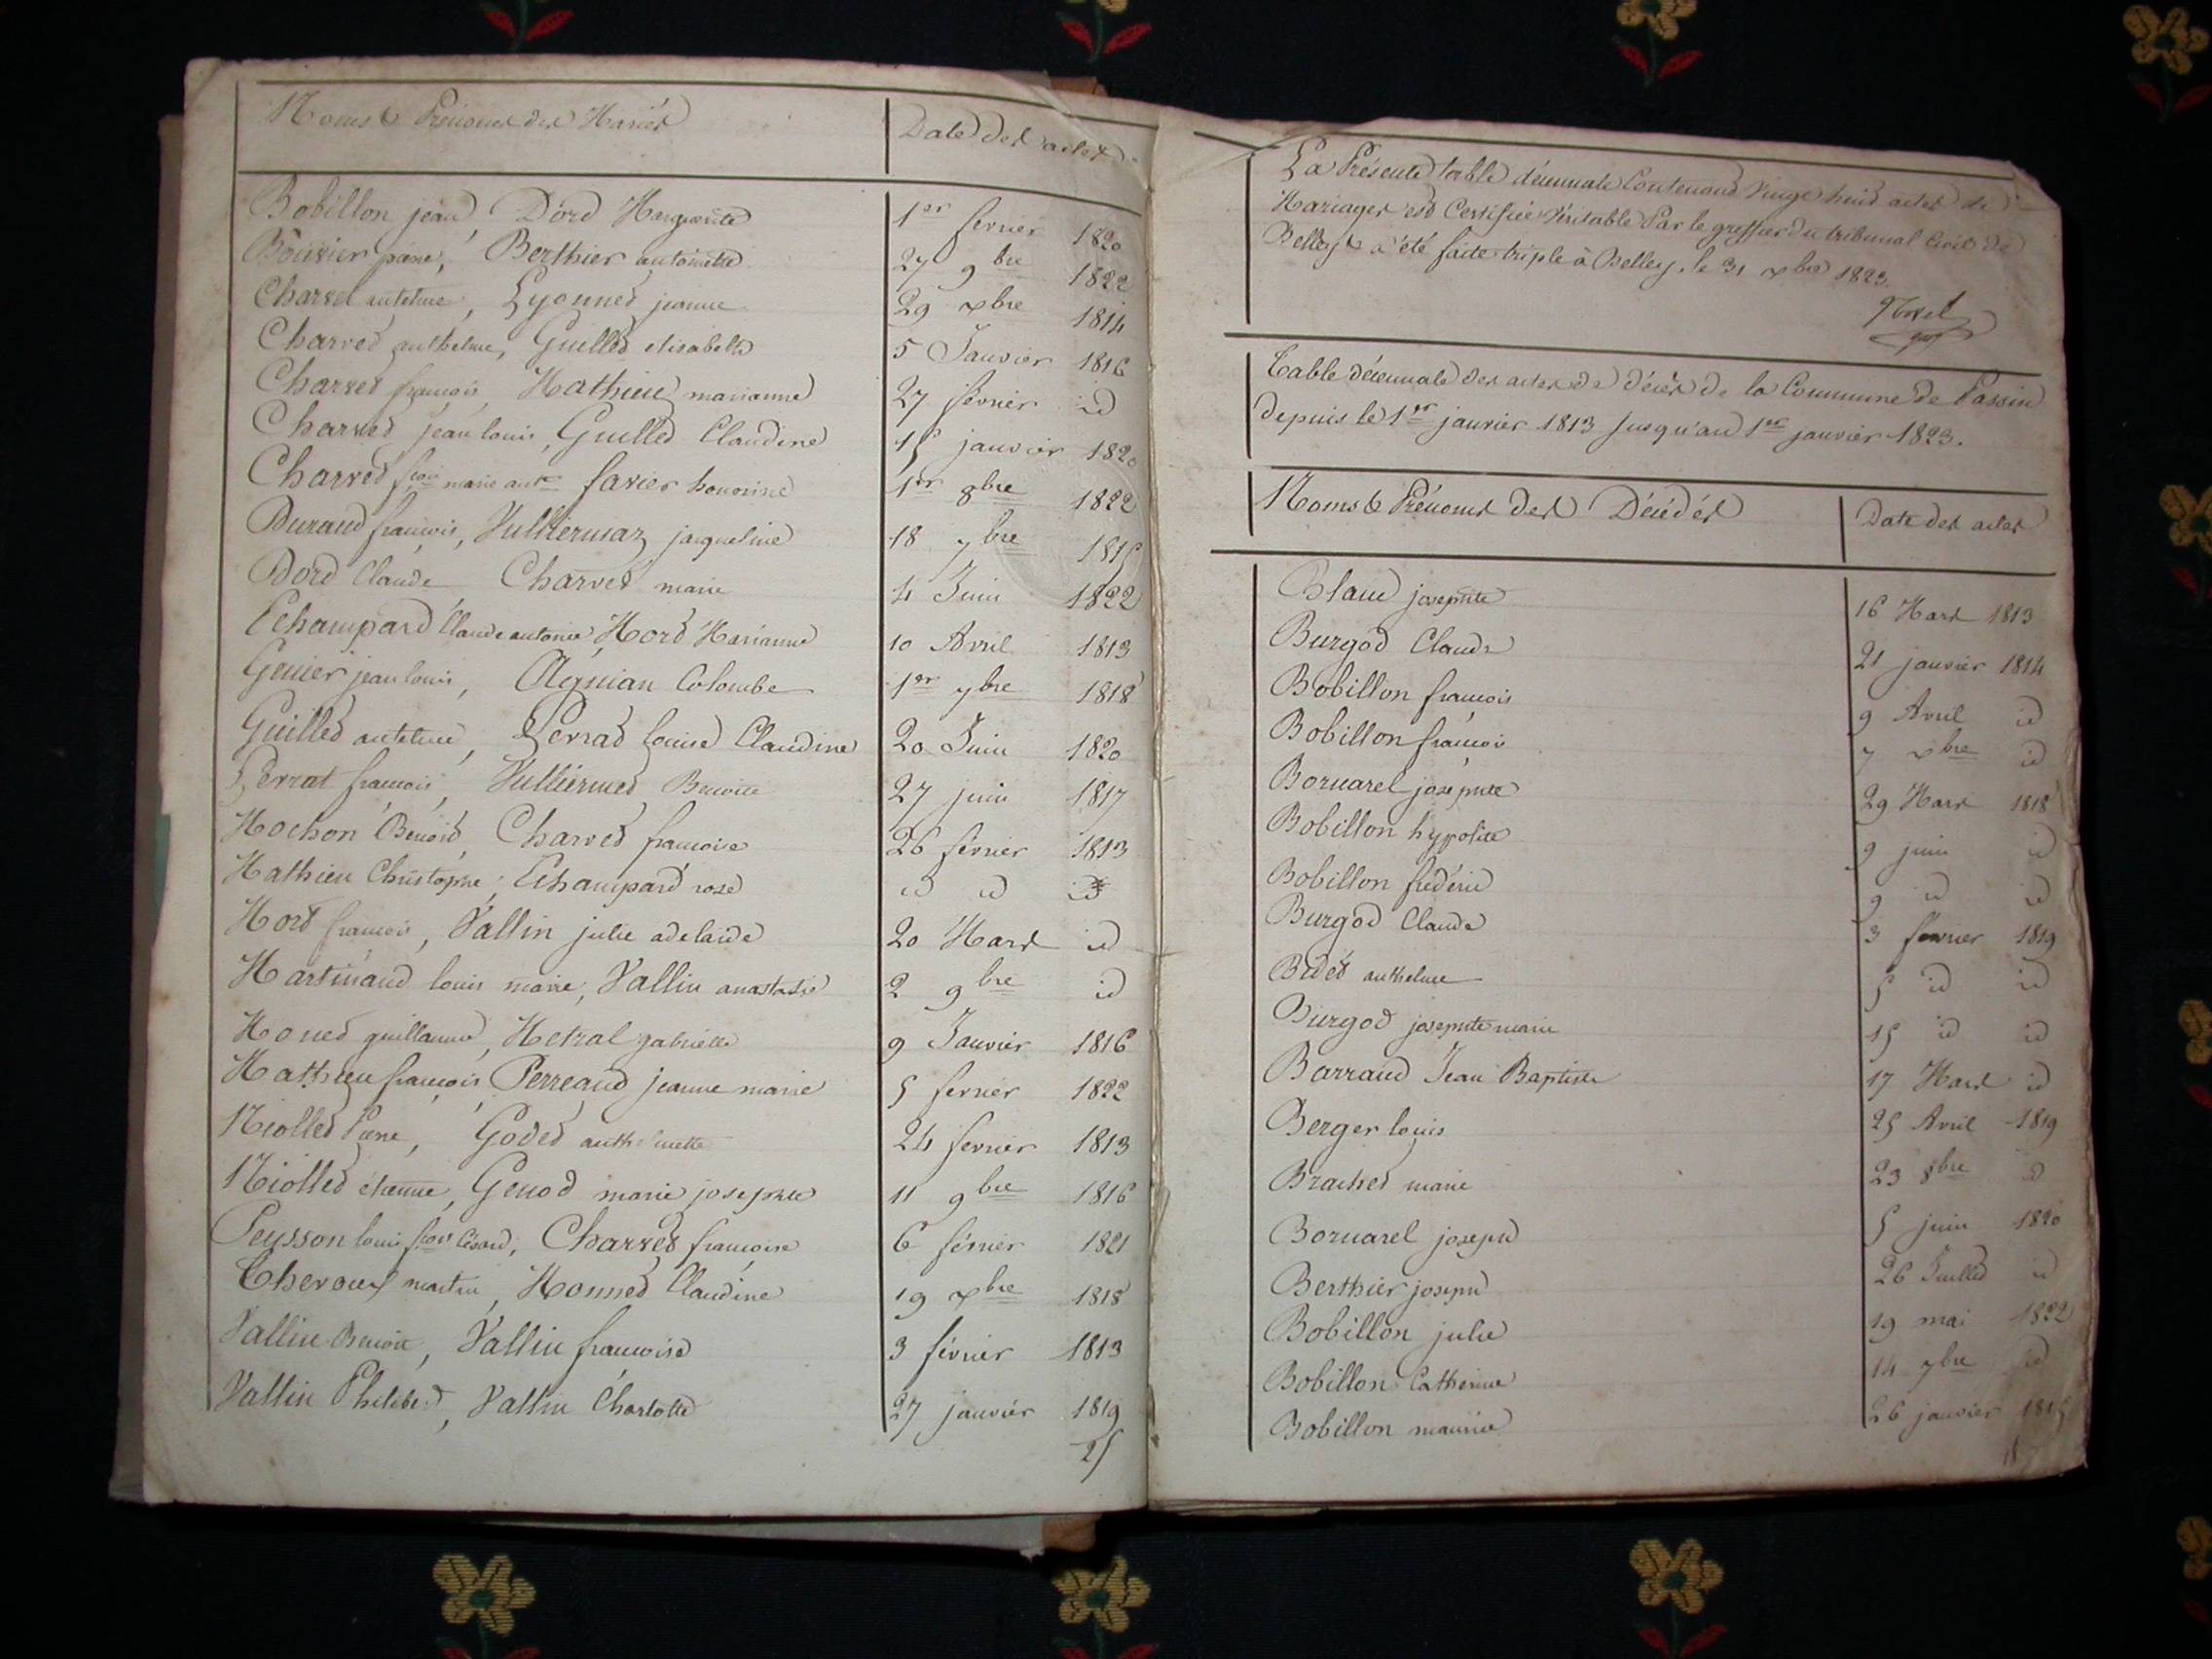 Noms & Prénoms des Mariés
Date des actes
Bobillon jean, Dord Marguerite 1er fevrier 1820
Bouvier pierre, Berthier antoinette 27 9bre 1822
Charvet antelme, Lyonned jeanne 29 xbre 1814
Charved anthelme, Guilled elisabeth 5 Janvier 1816
Charved françois, Mathieu marianne 27 fevrier id
Charved jean louis, Guilled Claudine 15 janvier 1820
Charved fçois marie ant.ne favier honorine 1er 8bre 1822
Durand françois, Vulliermaz jacqueline 18 7bre 1815
Dord Claude Charved marie 4 Juin 1822
Echampard Claude antoine, Mord Marianne 10 Avril 1813
Genier jean louis, Aignian Colombe 1er 7bre 1818
Guilled antelme, Perrad Louise Claudine 20 Juin 1820
Perrat francois, Vulliermed Benoite 27 juin 1817
Mochon Benoid, Charved francoise 26 fevrier 1813
Mathieu Christophe, Echampard rose id id id
Mord francois, Vallin julie adelaide 20 Mars id
Martinaud louis marie, Vallin anastasie 2 9bre id
Moned guillaume, Metral gabrielle 9 Janvier 1816
Mathieu françois, Perreaud jeanne marie 5 fevrier 1822
Niolled Pierre, Goded anthelmette 24 fevrier 1813
Niolled étienne, Genod marie josephte 11 9bre 1816
Peysson louis fçois Césard, Charved françoise 6 février 1821
Theroux martin, Monned Claudine 19 xbre 1818
Vallin Benoit, Vallin francoise 3 février 1813
Vallin Philiberd, Vallin Charlotte 27 janvier 1819
25
La Présente table décennale Contenand Vingt huid actes de
Mariages est Certifiée Véritable Par le greffier du tribunal Civil de
Belley & a été faite triple à Belley, le 31 xbre 1823.
Table décennale des actes de décès de la Commune de Passin
depuis le 1er janvier 1813 Jusqu'au 1er janvier 1823.
Noms & Prénoms des Décédés
Date des actes
Blanc josephte 16 Mars 1813
Burgod Claude 21 janvier 1814
Bobillon françois 9 Avril id
Bobillon françois 7 xbre id
Bornarel josephte 29 Mars 1818
Bobillon hyppolite 9 juin id
Bobillon fréderic 9 id id
Burgod Claude 3 fevrier 1819
Bided anthelme 5 id id
Burgod josephte marie 15 id id
Barraud Jean Baptiste 17 Mars id
Berger louis 25 Avril 1819
Brached marie 23 8bre id
Bornarel joseph 5 juin 1820
Berthier joseph 26 Juilled id
Bobillon julie 19 mai 1822
Bobillon Catherine 14 7bre id
Bobillon maurice 26 janvier 1815
18